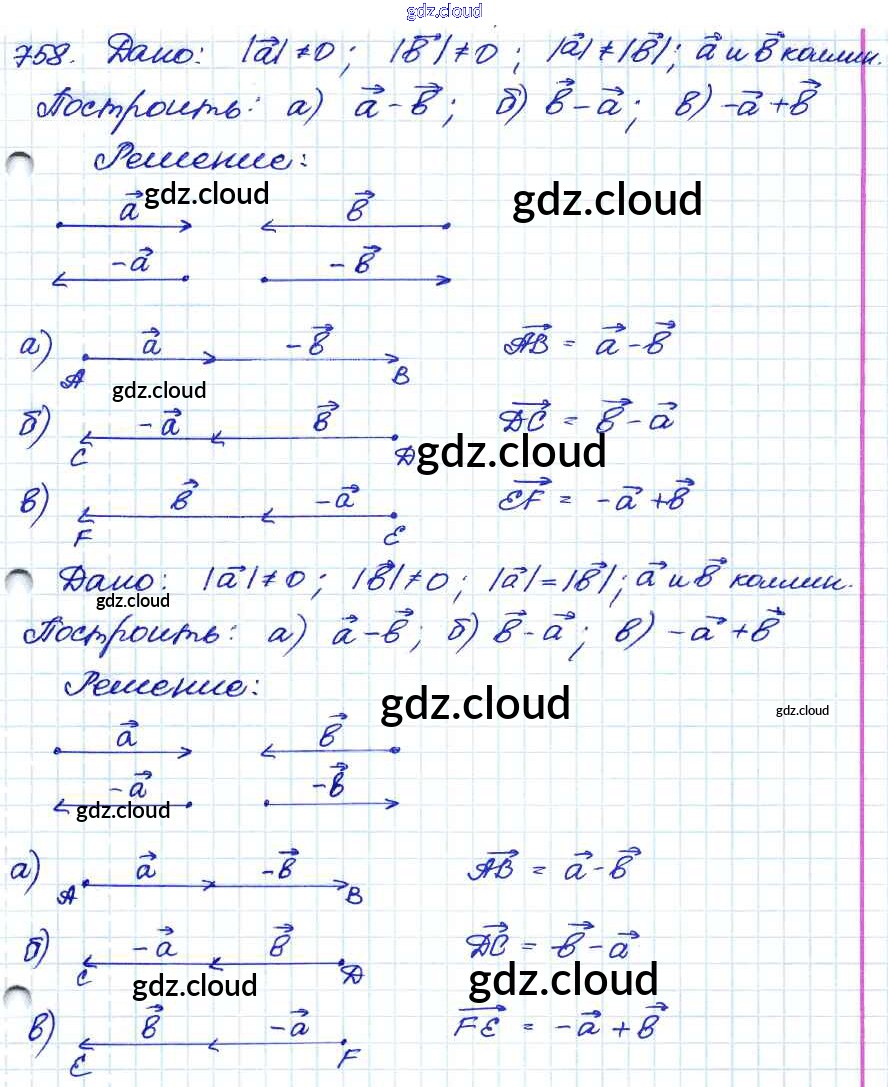 gdz.cloud
758. Дано: |a⃗| ≠ 0; |b⃗| ≠ 0; |a⃗| ≠ |b⃗|; a⃗ и b⃗ коллин.
Построить: а) a⃗ - b⃗; б) b⃗ - a⃗; в) -a⃗ + b⃗
Решение:
a⃗ gdz.cloud b⃗ gdz.cloud
-a⃗ -b⃗
а) a⃗ -b⃗ AB⃗ = a⃗ - b⃗
A B
gdz.cloud
б) -a⃗ b⃗ DC⃗ = b⃗ - a⃗
C D gdz.cloud
в) b⃗ -a⃗ EF⃗ = -a⃗ + b⃗
F E
Дано: |a⃗| ≠ 0; |b⃗| ≠ 0; |a⃗| = |b⃗|; a⃗ и b⃗ коллин.
gdz.cloud
Построить: а) a⃗ - b⃗; б) b⃗ - a⃗; в) -a⃗ + b⃗
Решение:
gdz.cloud gdz.cloud
a⃗ b⃗
-a⃗ -b⃗
gdz.cloud
а) a⃗ -b⃗ AB⃗ = a⃗ - b⃗
A B
б) -a⃗ b⃗ DC⃗ = b⃗ - a⃗
C D
gdz.cloud gdz.cloud
в) b⃗ -a⃗ FE⃗ = -a⃗ + b⃗
E F